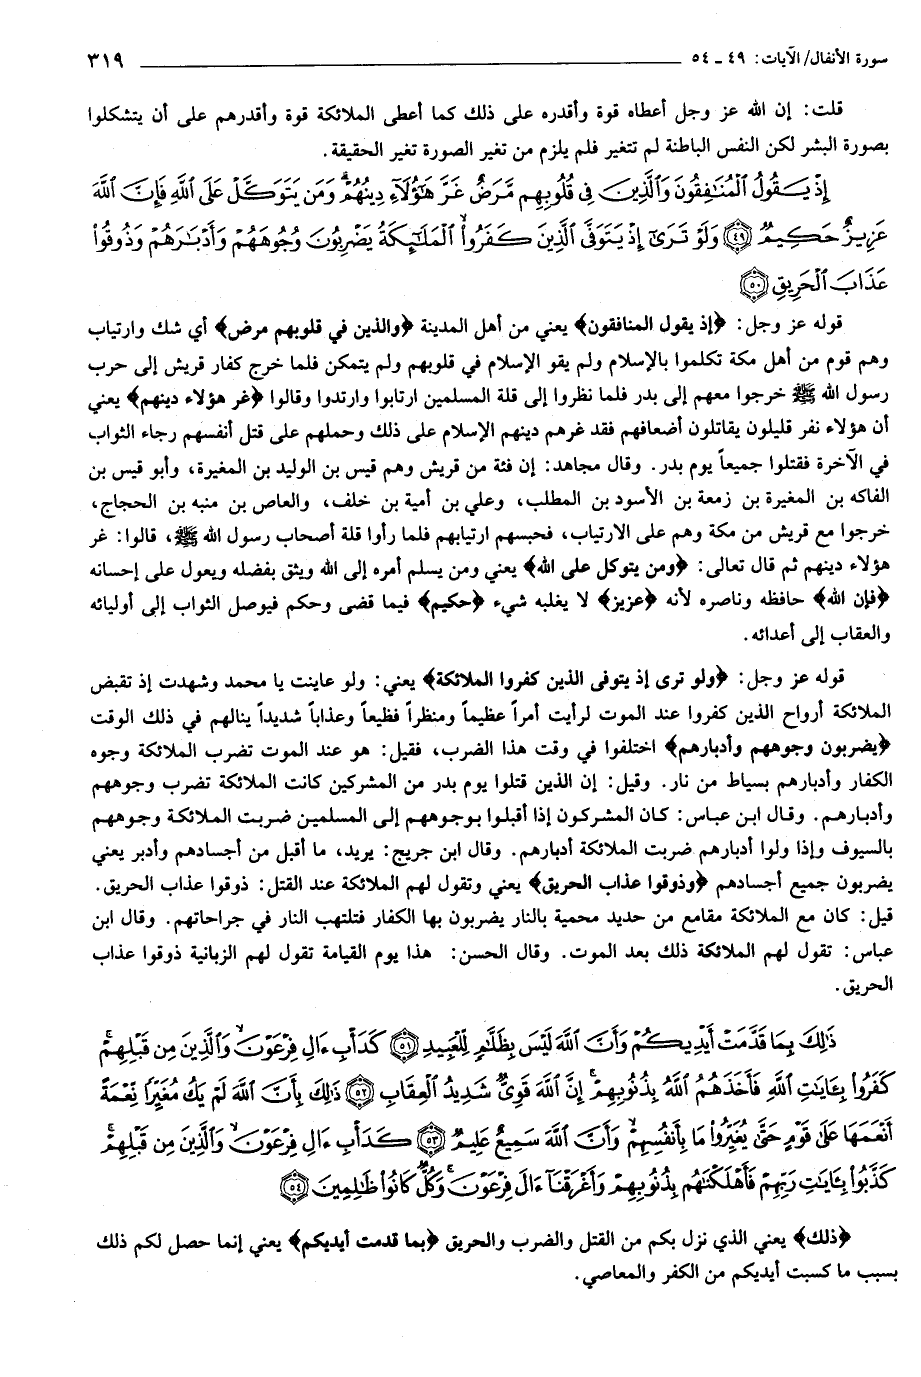 سورة الأنفال/ الآيات: ٤٩ ـ ٥٤ ٣١٩
قلت: إن الله عز وجل أعطاه قوة وأقدره على ذلك كما أعطى الملائكة قوة وأقدرهم على أن يتشكلوا
بصورة البشر لكن النفس الباطنة لم تتغير فلم يلزم من تغير الصورة تغير الحقيقة.
إِذْ يَقُولُ الْمُنَافِقُونَ وَالَّذِينَ فِي قُلُوبِهِم مَّرَضٌ غَرَّ هَٰؤُلَاءِ دِينُهُمْ ۗ وَمَن يَتَوَكَّلْ عَلَى اللَّهِ فَإِنَّ اللَّهَ
عَزِيزٌ حَكِيمٌ ﴿٤٩﴾ وَلَوْ تَرَىٰ إِذْ يَتَوَفَّى الَّذِينَ كَفَرُوا ۙ الْمَلَائِكَةُ يَضْرِبُونَ وُجُوهَهُمْ وَأَدْبَارَهُمْ وَذُوقُوا
عَذَابَ الْحَرِيقِ ﴿٥٠﴾
قوله عز وجل: ﴿إذ يقول المنافقون﴾ يعني من أهل المدينة ﴿والذين في قلوبهم مرض﴾ أي شك وارتياب
وهم قوم من أهل مكة تكلموا بالإسلام ولم يقو الإسلام في قلوبهم ولم يتمكن فلما خرج كفار قريش إلى حرب
رسول الله ﷺ خرجوا معهم إلى بدر فلما نظروا إلى قلة المسلمين ارتابوا وارتدوا وقالوا ﴿غر هؤلاء دينهم﴾ يعني
أن هؤلاء نفر قليلون يقاتلون أضعافهم فقد غرهم دينهم الإسلام على ذلك وحملهم على قتل أنفسهم رجاء الثواب
في الآخرة فقتلوا جميعاً يوم بدر. وقال مجاهد: إن فئة من قريش وهم قيس بن الوليد بن المغيرة، وأبو قيس بن
الفاكه بن المغيرة بن زمعة بن الأسود بن المطلب، وعلي بن أمية بن خلف، والعاص بن منبه بن الحجاج،
خرجوا مع قريش من مكة وهم على الارتياب، فحبسهم ارتيابهم فلما رأوا قلة أصحاب رسول الله ﷺ، قالوا: غر
هؤلاء دينهم ثم قال تعالى: ﴿ومن يتوكل على الله﴾ يعني ومن يسلم أمره إلى الله ويثق بفضله ويعول على إحسانه
﴿فإن الله﴾ حافظه وناصره لأنه ﴿عزيز﴾ لا يغلبه شيء ﴿حكيم﴾ فيما قضى وحكم فيوصل الثواب إلى أوليائه
والعقاب إلى أعدائه.
قوله عز وجل: ﴿ولو ترى إذ يتوفى الذين كفروا الملائكة﴾ يعني: ولو عاينت يا محمد وشهدت إذ تقبض
الملائكة أرواح الذين كفروا عند الموت لرأيت أمراً عظيماً ومنظراً فظيعاً وعذاباً شديداً ينالهم في ذلك الوقت
﴿يضربون وجوههم وأدبارهم﴾ اختلفوا في وقت هذا الضرب، فقيل: هو عند الموت تضرب الملائكة وجوه
الكفار وأدبارهم بسياط من نار. وقيل: إن الذين قتلوا يوم بدر من المشركين كانت الملائكة تضرب وجوههم
وأدبارهم. وقال ابن عباس: كان المشركون إذا أقبلوا بوجوههم إلى المسلمين ضربت الملائكة وجوههم
بالسيوف وإذا ولوا أدبارهم ضربت الملائكة أدبارهم. وقال ابن جريج: يريد، ما أقبل من أجسادهم وأدبر يعني
يضربون جميع أجسادهم ﴿وذوقوا عذاب الحريق﴾ يعني وتقول لهم الملائكة عند القتل: ذوقوا عذاب الحريق.
قيل: كان مع الملائكة مقامع من حديد محمية بالنار يضربون بها الكفار فتلتهب النار في جراحاتهم. وقال ابن
عباس: تقول لهم الملائكة ذلك بعد الموت. وقال الحسن: هذا يوم القيامة تقول لهم الزبانية ذوقوا عذاب
الحريق.
ذَٰلِكَ بِمَا قَدَّمَتْ أَيْدِيكُمْ وَأَنَّ اللَّهَ لَيْسَ بِظَلَّامٍ لِّلْعَبِيدِ ﴿٥١﴾ كَدَأْبِ آلِ فِرْعَوْنَ ۙ وَالَّذِينَ مِن قَبْلِهِمْ ۚ
كَفَرُوا بِآيَاتِ اللَّهِ فَأَخَذَهُمُ اللَّهُ بِذُنُوبِهِمْ ۗ إِنَّ اللَّهَ قَوِيٌّ شَدِيدُ الْعِقَابِ ﴿٥٢﴾ ذَٰلِكَ بِأَنَّ اللَّهَ لَمْ يَكُ مُغَيِّرًا نِّعْمَةً
أَنْعَمَهَا عَلَىٰ قَوْمٍ حَتَّىٰ يُغَيِّرُوا مَا بِأَنفُسِهِمْ ۙ وَأَنَّ اللَّهَ سَمِيعٌ عَلِيمٌ ﴿٥٣﴾ كَدَأْبِ آلِ فِرْعَوْنَ ۙ وَالَّذِينَ مِن قَبْلِهِمْ ۚ
كَذَّبُوا بِآيَاتِ رَبِّهِمْ فَأَهْلَكْنَاهُم بِذُنُوبِهِمْ وَأَغْرَقْنَا آلَ فِرْعَوْنَ ۚ وَكُلٌّ كَانُوا ظَالِمِينَ ﴿٥٤﴾
﴿ذلك﴾ يعني الذي نزل بكم من القتل والضرب والحريق ﴿بما قدمت أيديكم﴾ يعني إنما حصل لكم ذلك
بسبب ما كسبت أيديكم من الكفر والمعاصي.